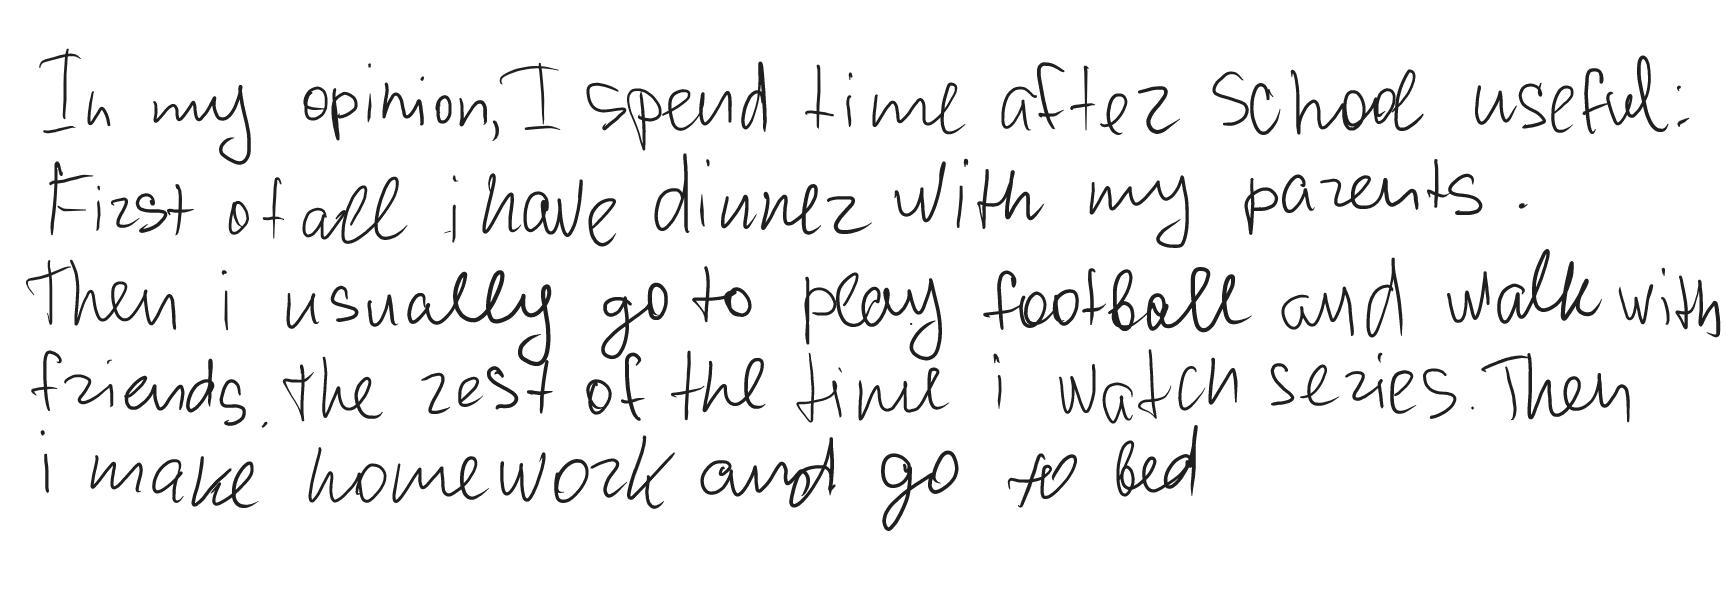 In my opinion, I spend time after school useful:
First of all i have dinner with my parents.
Then i usually go to play football and walk with
friends. the rest of the time i watch series. Then
i make homework and go to bed